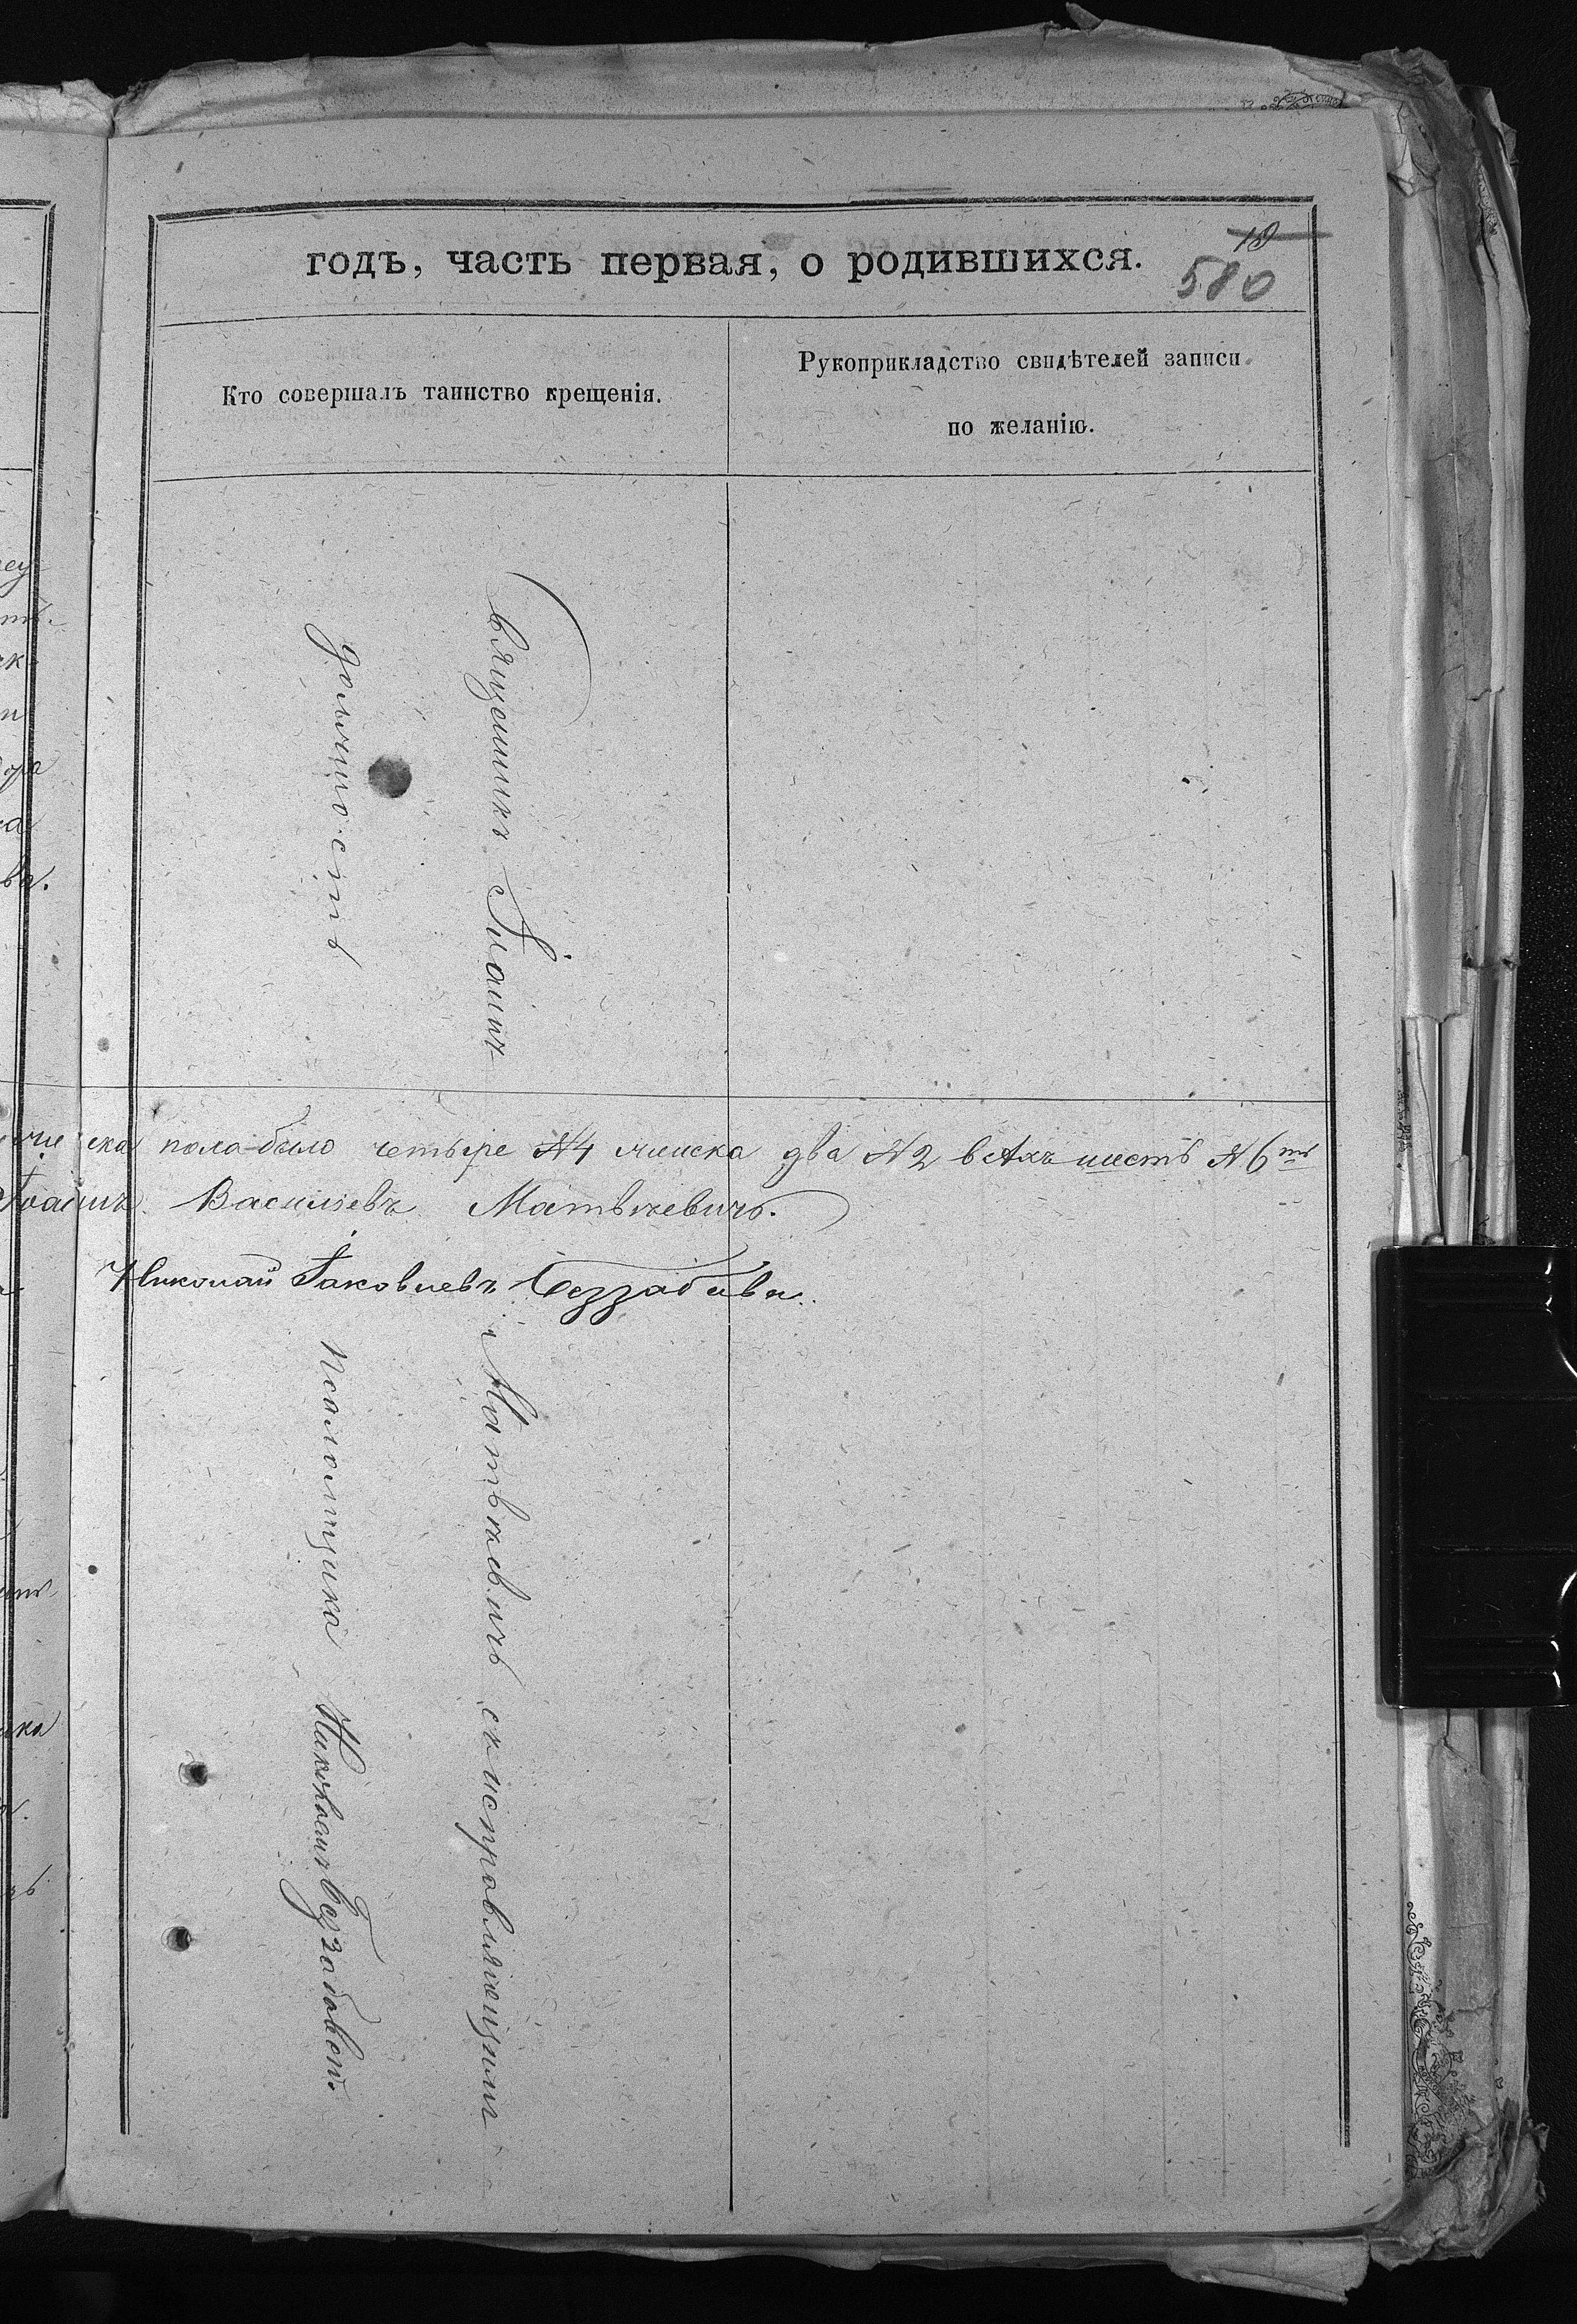 годъ, часть первая, о родившихся.
18
580
Кто совершалъ таинство крещенія.
Рукоприкладство свидѣтелей записи
по желанію.
Священникъ Іоаннъ
должность
ска пола было четыре №4 женска два №2 всѣхъ шесть №6ть
Іоаннъ Васильевъ Матвѣевичъ.
Николай Іаковлевъ Беззабава.
Матвѣевичъ съ исправляющимъ
Псаломщика Николаемъ Беззабавом.